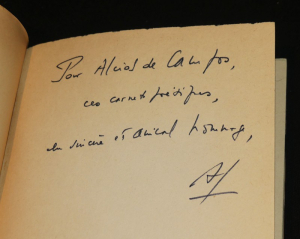 Pour Alciol de Campos,
ces carnets poétiques,
en sincère et amical hommage,